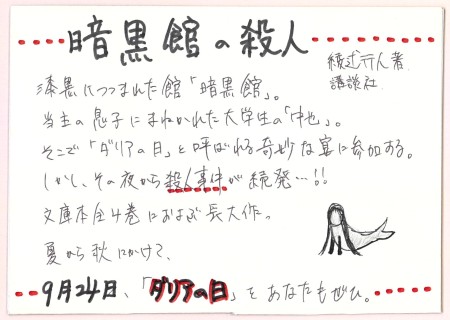 暗黒館の殺人
綾辻行人著
講談社
漆黒につつまれた館「暗黒館」。
当主の息子にまねかれた大学生の「中也」。
そこで「ダリアの日」と呼ばれる奇妙な宴に参加する。
しかし、その夜から殺人事件が続発…!!
文庫本全4巻におよぶ長大作。
夏から秋にかけて、
9月24日、「ダリアの日」をあなたもぜひ。